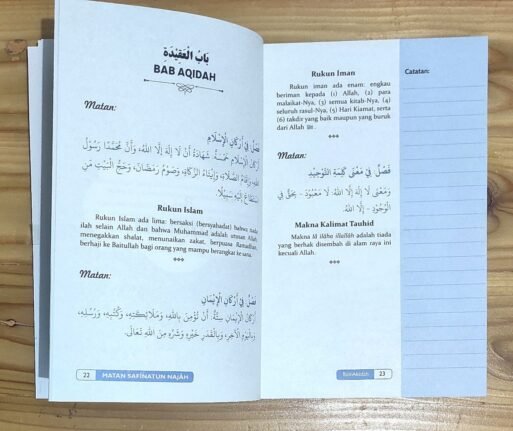 بَابُ الْعَقِيْدَةِ
BAB AQIDAH
Matan:
فَصْلٌ فِيْ أَرْكَانِ الْإِسْلَامِ
أَرْكَانُ الْإِسْلَامِ خَمْسَةٌ: شَهَادَةُ أَنْ لَا إِلٰهَ إِلَّا اللهُ، وَأَنَّ مُحَمَّدًا رَسُوْلُ
اللهِ، وَإِقَامُ الصَّلَاةِ، وَإِيْتَاءُ الزَّكَاةِ، وَصَوْمُ رَمَضَانَ، وَحَجُّ الْبَيْتِ مَنِ
اسْتَطَاعَ إِلَيْهِ سَبِيْلًا
Rukun Islam
Rukun Islam ada lima: bersaksi (bersyahadat) bahwa tiada
ilah selain Allah dan bahwa Muhammad adalah utusan Allah,
menegakkan shalat, menunaikan zakat, berpuasa Ramadhan,
berhaji ke Baitullah bagi orang yang mampu berangkat ke sana.
Matan:
فَصْلٌ فِيْ أَرْكَانِ الْإِيْمَانِ
أَرْكَانُ الْإِيْمَانِ سِتَّةٌ: أَنْ تُؤْمِنَ بِاللهِ، وَمَلَائِكَتِهِ، وَكُتُبِهِ، وَرُسُلِهِ،
وَبِالْيَوْمِ الْآخِرِ، وَبِالْقَدَرِ خَيْرِهِ وَشَرِّهِ مِنَ اللهِ تَعَالَى.
22 MATAN SAFÎNATUN NAJÂH
Rukun Iman
Rukun iman ada enam: engkau
beriman kepada (1) Allah, (2) para
malaikat-Nya, (3) semua kitab-Nya, (4)
seluruh rasul-Nya, (5) Hari Kiamat, serta
(6) takdir yang baik maupun yang buruk
dari Allah ﷻ.
Matan:
فَصْلٌ فِيْ مَعْنَى كَلِمَةِ التَّوْحِيْدِ
وَمَعْنَى لَا إِلٰهَ إِلَّا اللهُ: لَا مَعْبُوْدَ – بِحَقٍّ فِي
الْوُجُوْدِ – إِلَّا اللهُ.
Makna Kalimat Tauhid
Makna lâ ilâha illallâh adalah tiada
yang berhak disembah di alam raya ini
kecuali Allah.
Bab Akidah 23
Catatan: